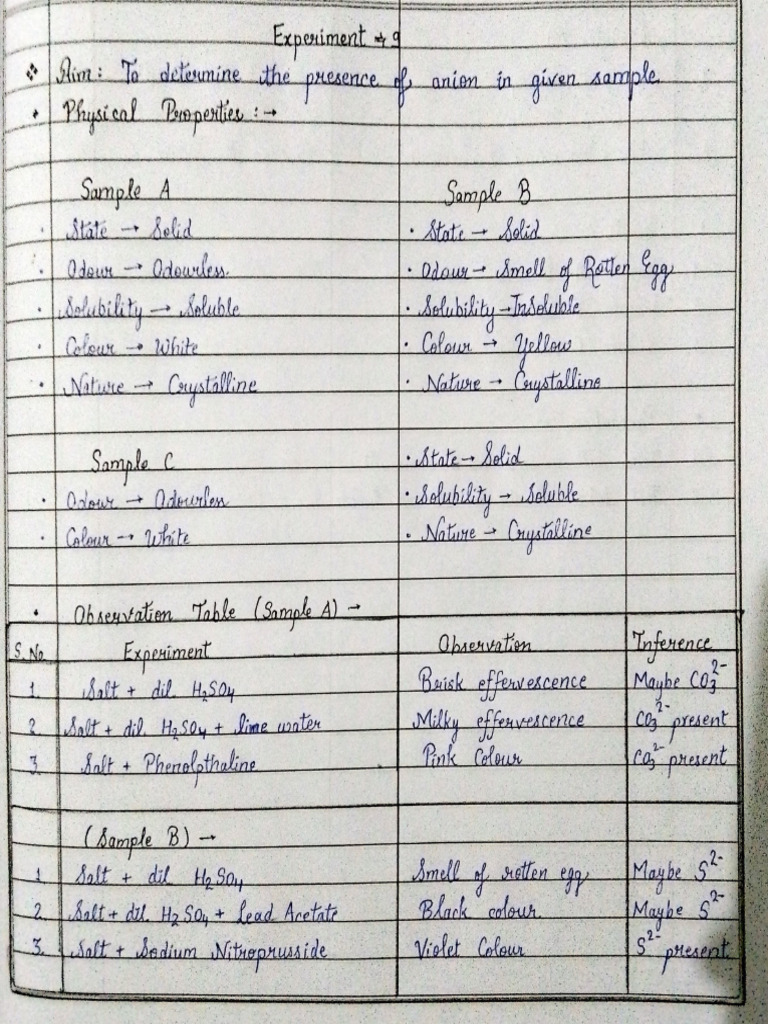 Experiment → 9
Aim: To determine the presence of anion in given sample
Physical Properties :→
Sample A
Sample B
State → Solid
State → Solid
Odour → Odourless
Odour → Smell of Rotten Egg
Solubility → Soluble
Solubility → InSoluble
Colour → White
Colour → Yellow
Nature → Crystalline
Nature → Crystalline
Sample C
State → Solid
Odour → Odourless
Solubility → Soluble
Colour → White
Nature → Crystalline
Observation Table (Sample A) →
S.No Experiment Observation Inference
1. Salt + dil H₂SO₄ Brisk effervescence Maybe CO₃²⁻
2. Salt + dil. H₂SO₄ + lime water Milky effervescence CO₃²⁻ present
3. Salt + Phenolpthaline Pink Colour CO₃²⁻ present
(Sample B) →
1. Salt + dil H₂SO₄ Smell of rotten egg Maybe S²⁻
2. Salt + dil H₂SO₄ + Lead Acetate Black colour. Maybe S²⁻
3. Salt + Sodium Nitroprusside Violet Colour S²⁻ present